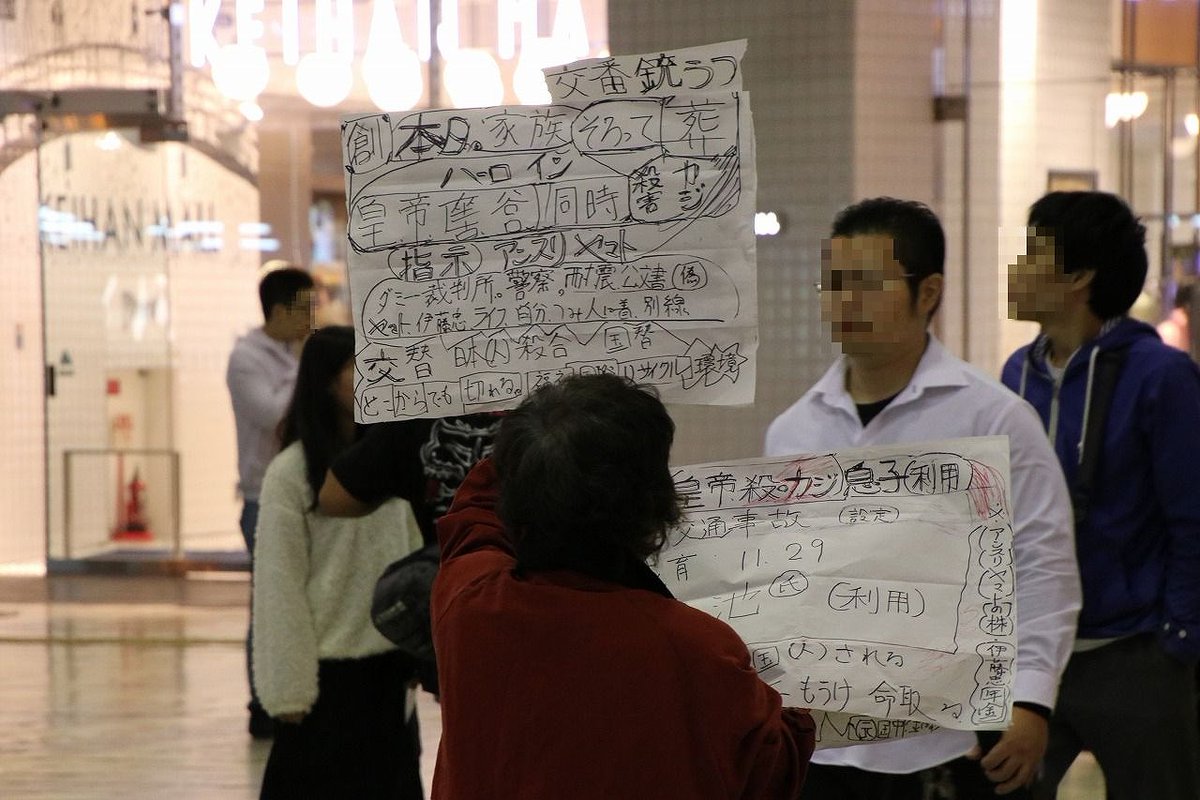 KEIHAN MA
KEIHAN MALL
交番銃うつ
創 本人。家族 そろって 葬
ハーロイン
皇帝 同時 殺害 カジ
指示 アンスリ ヤマト
ダミー裁判所。警察。耐震公文書(偽)
ヤマト 伊藤忠 ライフ 自分つみ人に着、別線
交替 日本(人)殺合 国替
どこからでも 切れる。 リサイクル 環境
皇帝殺。カジ 息子 利用
交通事故 (設定)
育 11.29
池 氏 (利用)
国(人)される
もうけ 命取る
メ・アンスリ(ヤマトの株)伊藤忠 年金